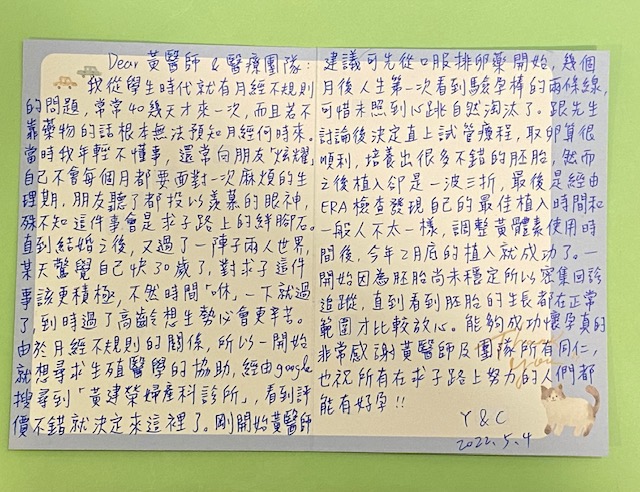 Dear 黃醫師 & 醫療團隊:
我從學生時代就有月經不規則
的問題,常常40幾天才來一次,而且若不
靠藥物的話根本無法預知月經何時來。
當時我年輕不懂事,還常向朋友「炫耀」
自己不會每個月都要面對一次麻煩的生
理期,朋友聽了都投以羨慕的眼神,
殊不知這件事會是求子路上的絆腳石。
直到結婚之後,又過了一陣子兩人世界,
某天驚覺自己快30歲了,對求子這件
事該更積極,不然時間「咻」一下就過
了,到時過了高齡想生勢必會更辛苦。
由於月經不規則的關係,所以一開始
就想尋求生殖醫學的協助,經由google
搜尋到「黃建榮婦產科診所」,看到評
價不錯就決定來這裡了。剛開始黃醫師
建議可先從口服排卵藥開始,幾個
月後人生第一次看到驗孕棒的兩條線,
可惜未照到心跳自然淘汰了。跟先生
討論後決定直上試管療程,取卵算很
順利,培養出很多不錯的胚胎,然而
之後植入卻是一波三折,最後是經由
ERA檢查發現自己的最佳植入時間和
一般人不太一樣,調整黃體素使用時
間後,今年2月底的植入就成功了。一
開始因為胚胎尚未穩定所以密集回診
追蹤,直到看到胚胎的生長都在正常
範圍才比較放心。能夠成功懷孕真的
非常感謝黃醫師及團隊所有同仁,
也祝所有在求子路上努力的人們都
能有好孕!!
Y & C
2022.5.4
Thank you